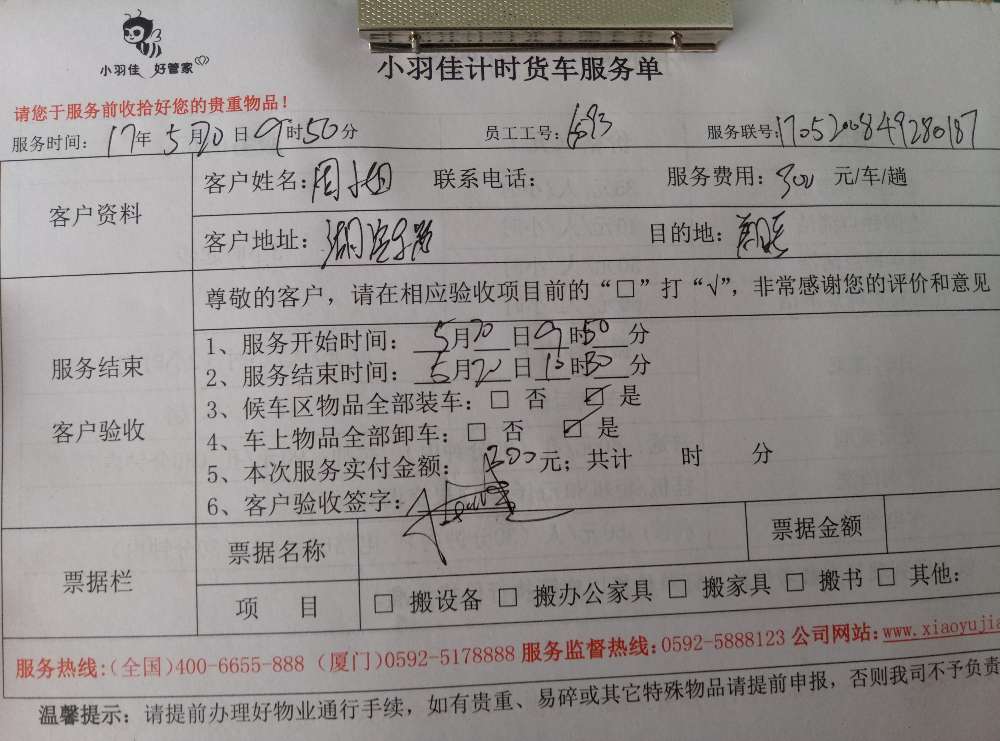 小羽佳 好管家
小羽佳计时货车服务单
请您于服务前收拾好您的贵重物品!
服务时间: 17年 5月20日9时50分 员工工号: 1693 服务联号:1705200849280187
客户资料
客户姓名:周小姐 联系电话: 服务费用:300 元/车/趟
客户地址: 湖滨东路 目的地:
尊敬的客户,请在相应验收项目前的“□”打“√”,非常感谢您的评价和意见
服务结束
客户验收
1、服务开始时间: 5月20日9时50分
2、服务结束时间: 5月20日10时30分
3、候车区物品全部装车:□ 否 ☑ 是
4、车上物品全部卸车:□ 否 ☑ 是
5、本次服务实付金额: 300元;共计 时 分
6、客户验收签字:
票据栏
票据名称 票据金额
项 目 □ 搬设备 □ 搬办公家具 □ 搬家具 □ 搬书 □ 其他:
服务热线:(全国)400-6655-888 (厦门)0592-5178888 服务监督热线:0592-5888123 公司网站:www.xiaoyujia
温馨提示:请提前办理好物业通行手续,如有贵重、易碎或其它特殊物品请提前申报,否则我司不予负责